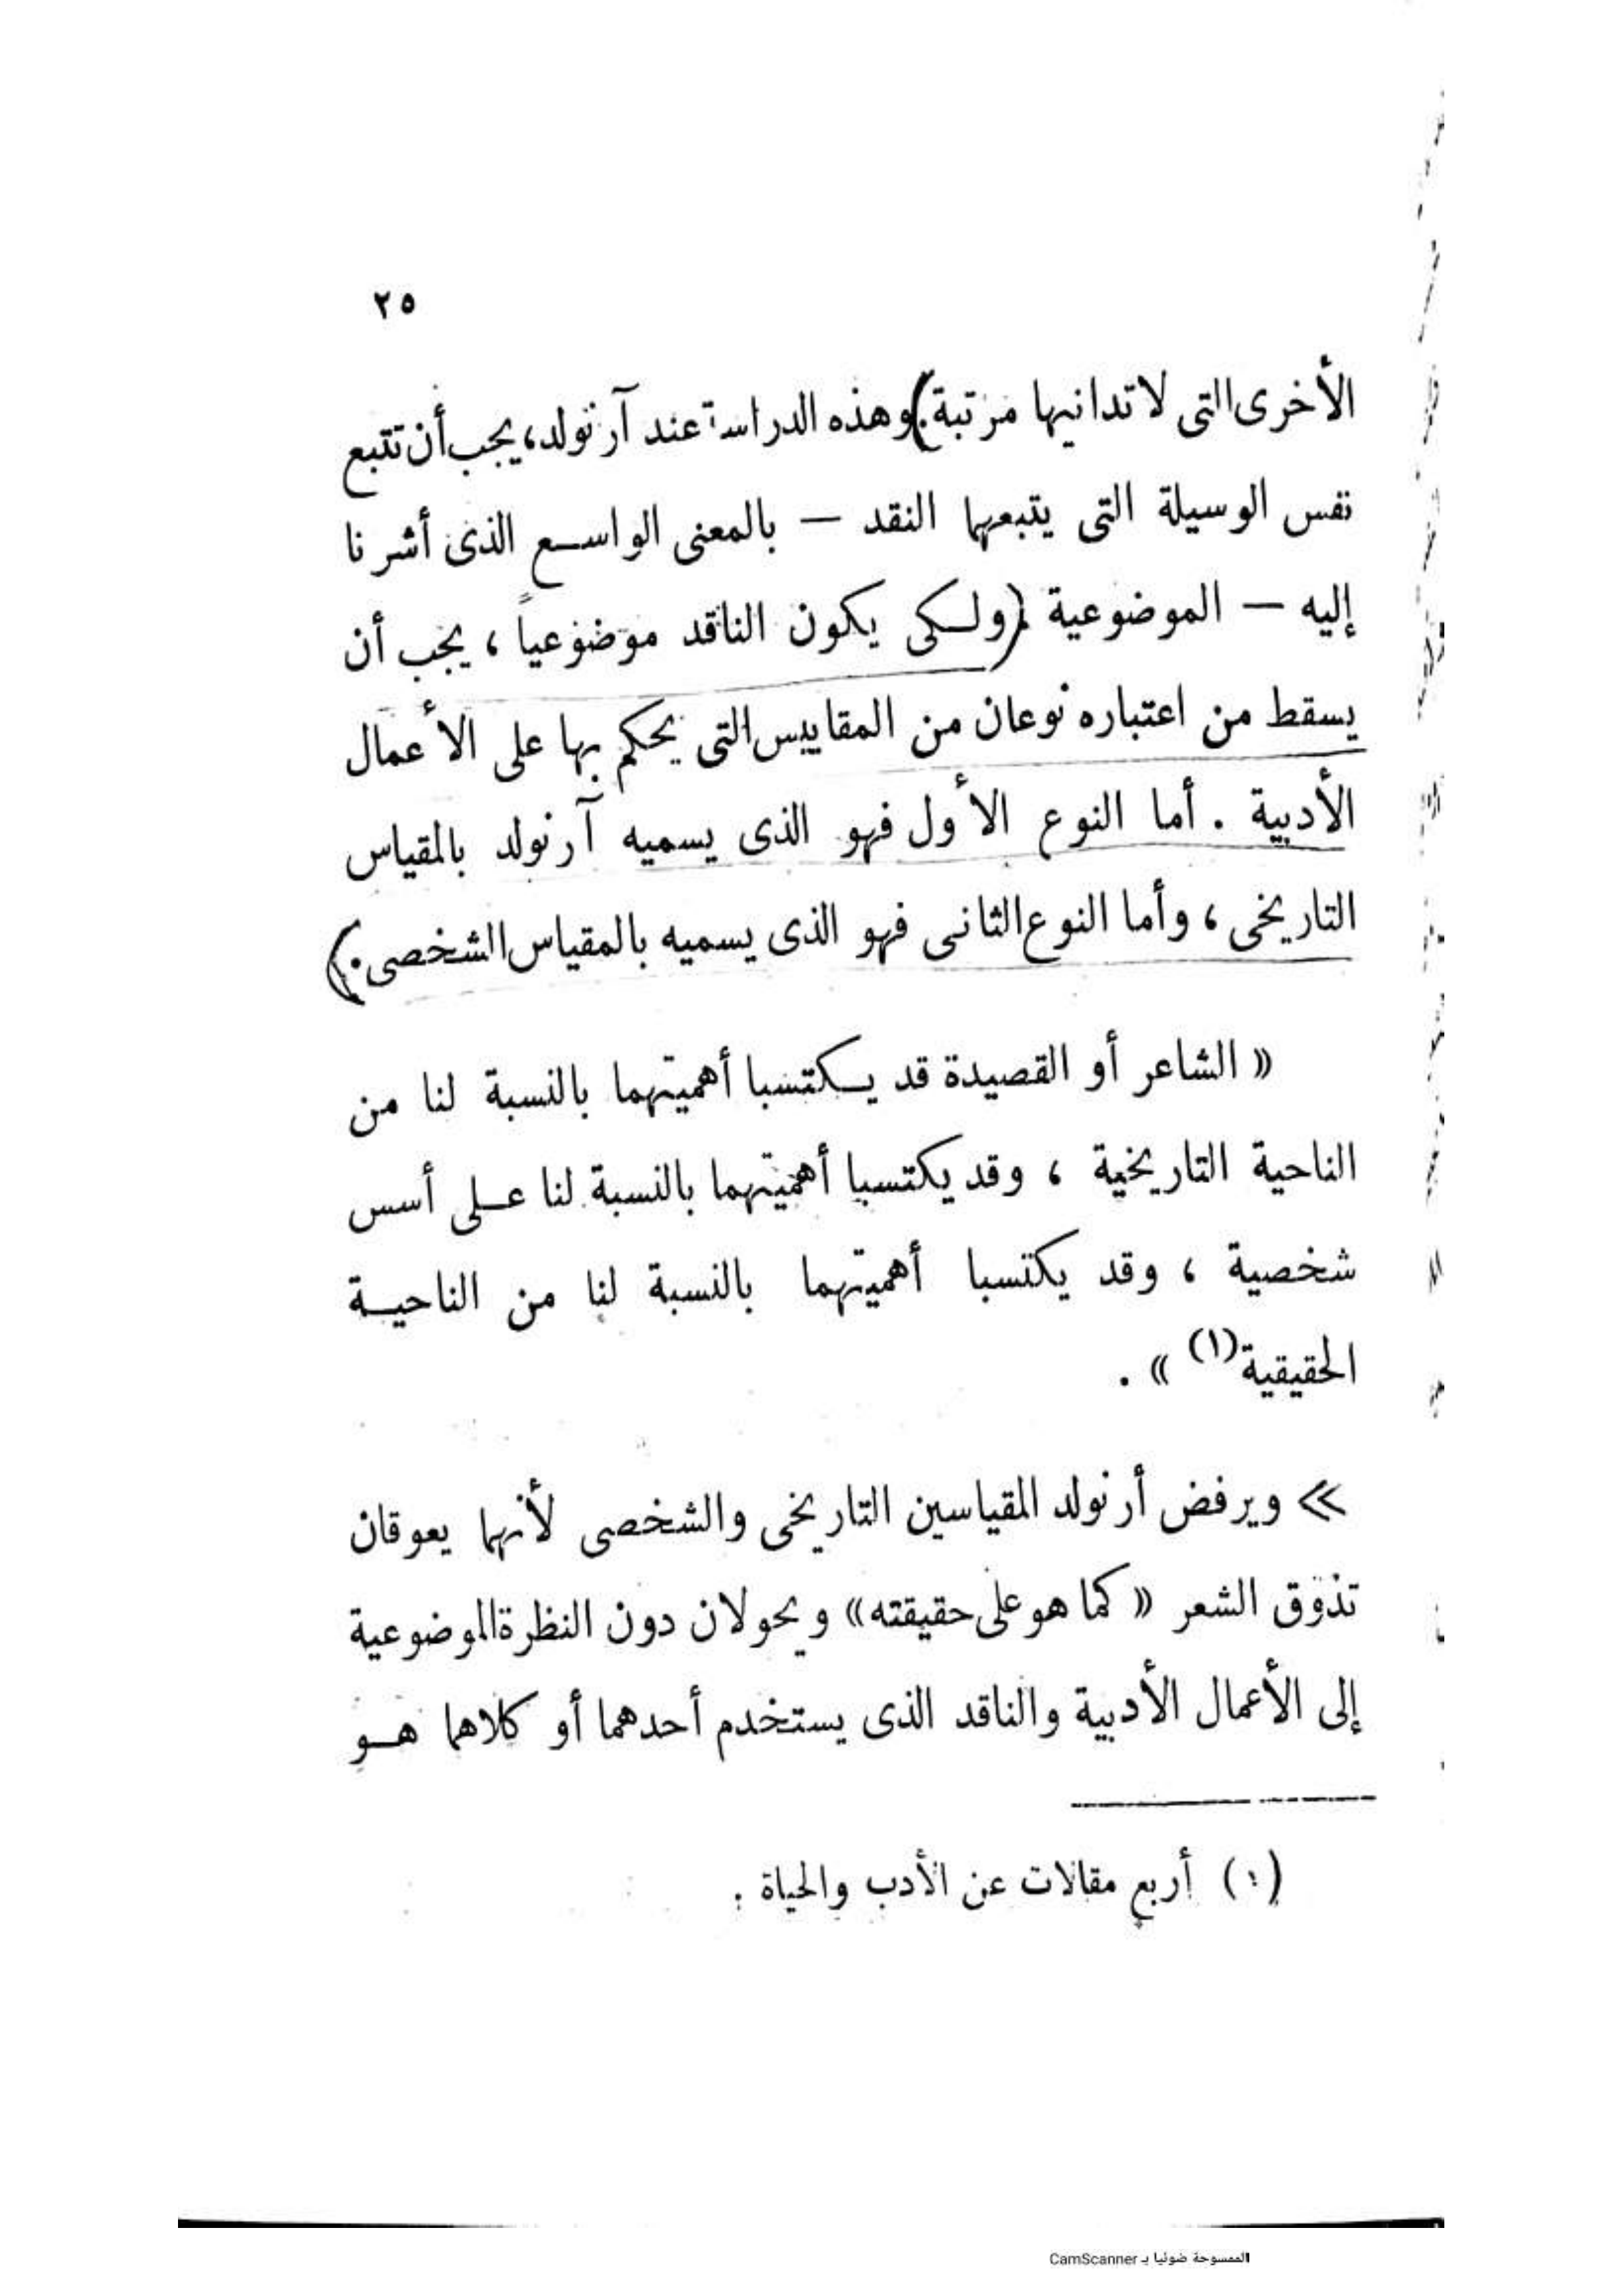 ٢٥
الأخرى التى لا تدانيها مرتبة.) وهذه الدراسة عند آرنولد، يجب أن تتبع
نفس الوسيلة التى يتبعها النقد — بالمعنى الواسع الذى أشرنا
إليه — الموضوعية. (ولكى يكون الناقد موضوعياً ، يجب أن
يسقط من اعتباره نوعان من المقاييس التى يحكم بها على الأعمال
الأدبية . أما النوع الأول فهو الذى يسميه آرنولد بالمقياس
التاريخى ، وأما النوع الثانى فهو الذى يسميه بالمقياس الشخصى .)
« الشاعر أو القصيدة قد يكتسبا أهميتهما بالنسبة لنا من
الناحية التاريخية ، وقد يكتسبا أهميتهما بالنسبة لنا على أسس
شخصية ، وقد يكتسبا أهميتهما بالنسبة لنا من الناحية
الحقيقية(١) » .
» ويرفض أرنولد المقياسين التاريخى والشخصى لأنهما يعوقان
تذوق الشعر « كما هو على حقيقته» ويحولان دون النظرة الموضوعية
إلى الأعمال الأدبية والناقد الذى يستخدم أحدهما أو كلاهما هو
(١) أربع مقالات عن الأدب والحياة .
الممسوحة ضوئيا بـ CamScanner